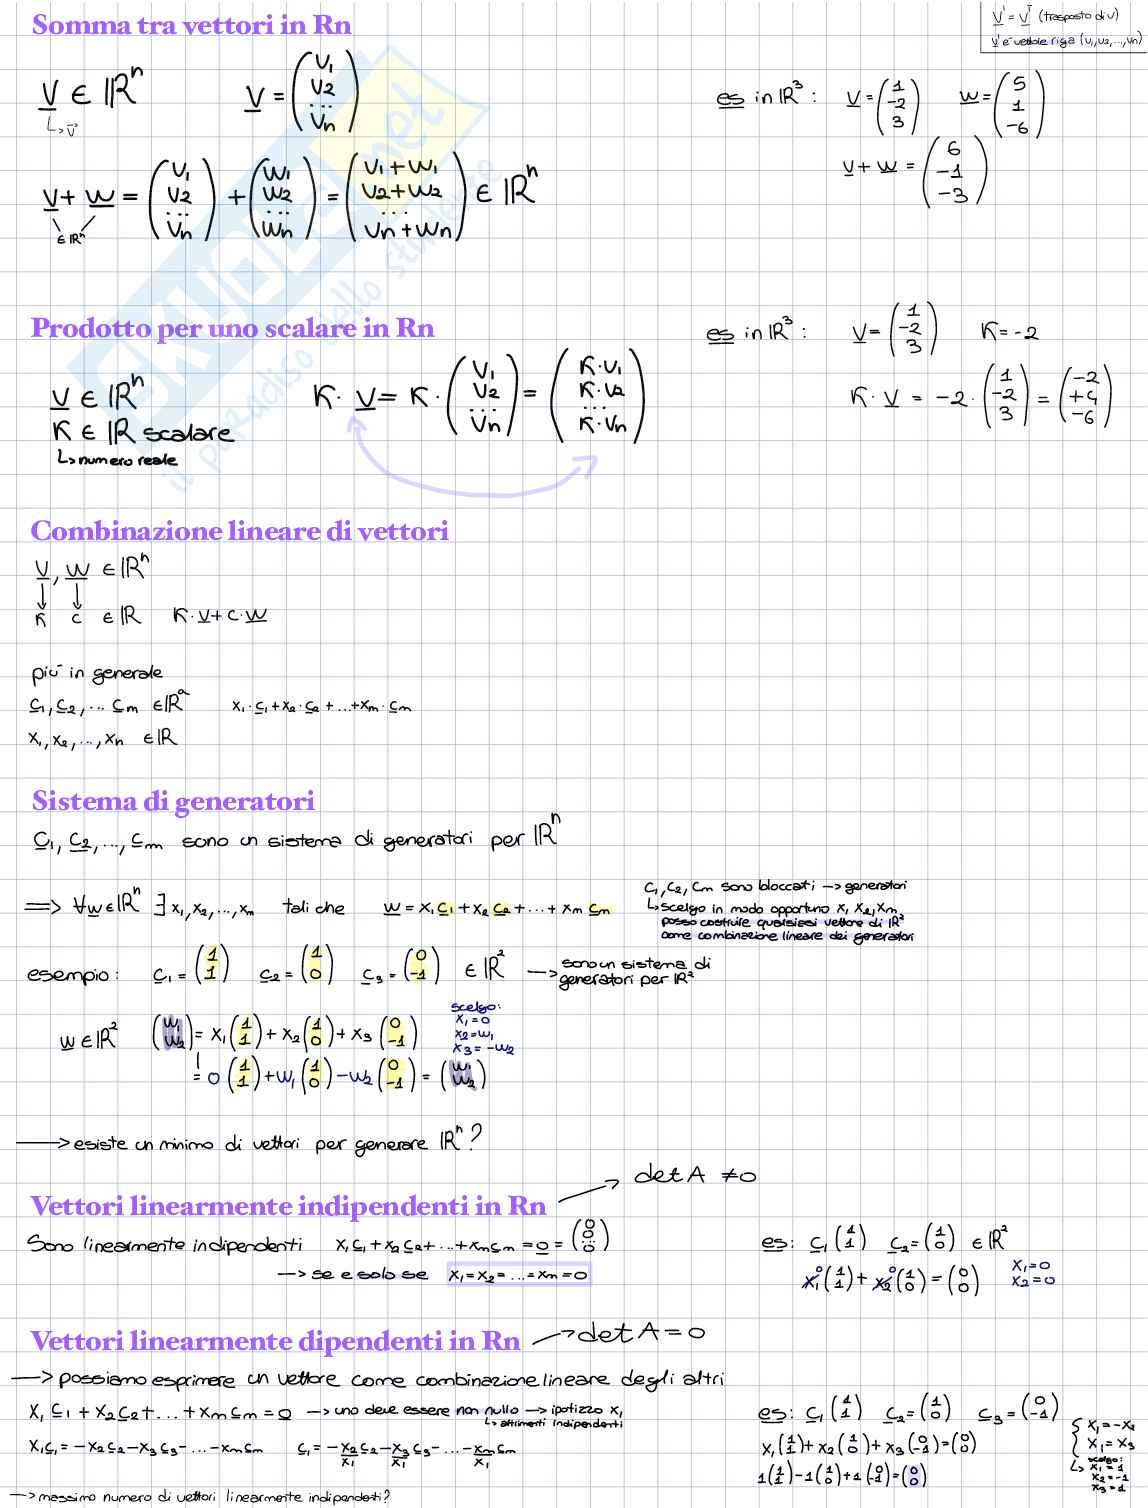 Somma tra vettori in Rn
v' = vᵀ (trasposto di v)
v' è vettore riga (v1, v2, ..., vn)
v ∈ ℝⁿ v = (v1 v2 ... vn)
↳ v⃗
es in ℝ³: v = (1 -2 3) w = (5 1 -6)
v + w = (6 -1 -3)
v + w = (v1 v2 ... vn) + (w1 w2 ... wn) = (v1+w1 v2+w2 ... vn+wn) ∈ ℝⁿ
∈ ℝⁿ
SKUOLA.net
il paradiso dello studente
Prodotto per uno scalare in Rn
es in ℝ³: v = (1 -2 3) K = -2
v ∈ ℝⁿ K · v = K · (v1 v2 ... vn) = (K·v1 K·v2 ... K·vn)
K · v = -2 · (1 -2 3) = (-2 +4 -6)
K ∈ ℝ scalare
↳ numero reale
Combinazione lineare di vettori
v, w ∈ ℝⁿ
↓ ↓
K c ∈ ℝ K·v + c·w
più in generale
c1, c2, ... cm ∈ ℝⁿ x1·c1 + x2·c2 + ... + xm·cm
x1, x2, ..., xn ∈ ℝ
Sistema di generatori
c1, c2, ..., cm sono un sistema di generatori per ℝⁿ
⟹ ∀w ∈ ℝⁿ ∃ x1, x2, ..., xm tali che w = x1c1 + x2c2 + ... + xmcm
c1, c2, cm sono bloccati → generatori
↳ scelgo in modo opportuno x1 x2, xm
posso costruire qualsiasi vettore di ℝ²
come combinazione lineare dei generatori
esempio: c1 = (1 1) c2 = (1 0) c3 = (0 -1) ∈ ℝ² → sono un sistema di
generatori per ℝ²
w ∈ ℝ² (w1 w2) = x1 (1 1) + x2 (1 0) + x3 (0 -1)
scelgo:
x1 = 0
x2 = w1
x3 = -w2
= 0 (1 1) + w1 (1 0) - w2 (0 -1) = (w1 w2)
→ esiste un minimo di vettori per generare ℝⁿ?
Vettori linearmente indipendenti in Rn → det A ≠ 0
Sono linearmente indipendenti x1c1 + x2c2 + ... + xmcm = 0 = (0 0 ... 0)
→ se e solo se x1 = x2 = ... = xm = 0
es: c1 (1 1) c2 = (1 0) ∈ ℝ²
x1 0 (1 1) + x2 0 (1 0) = (0 0)
x1 = 0
x2 = 0
Vettori linearmente dipendenti in Rn → det A = 0
→ possiamo esprimere un vettore come combinazione lineare degli altri
x1c1 + x2c2 + ... + xmcm = 0 → uno deve essere non nullo → ipotizzo x1
↳ altrimenti indipendenti
x1c1 = -x2c2 - x3c3 - ... - xmcm c1 = -x2/x1 c2 - x3/x1 c3 - ... - xm/x1 cm
es: c1 (1 1) c2 = (1 0) c3 = (0 -1)
x1 (1 1) + x2 (1 0) + x3 (0 -1) = (0 0)
1 (1 1) - 1 (1 0) + 1 (0 -1) = (0 0)
{ x1 = -x2
x1 = x3
↳ scelgo:
x1 = 1
x2 = -1
x3 = 1
→ massimo numero di vettori linearmente indipendenti?